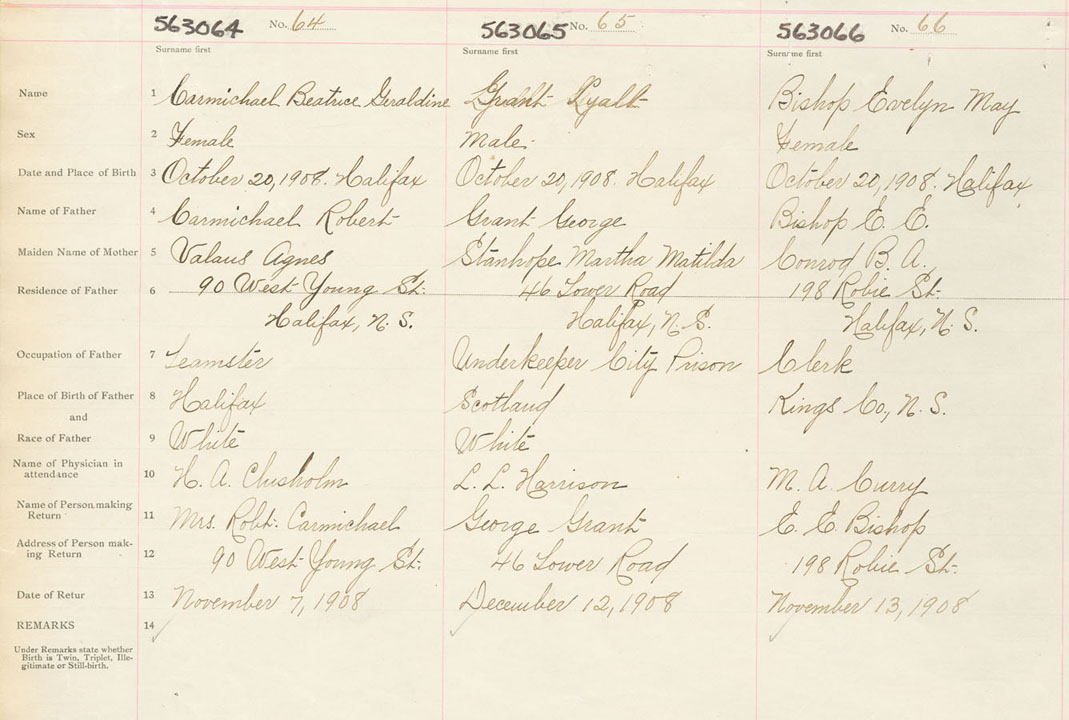 563064 No. 64 563065 No. 65 563066 No. 66
Surname first Surname first Surname first
Name 1 Carmichael Beatrice Geraldine Grant Lyall Bishop Evelyn May
Sex 2 Female Male. Female
Date and Place of Birth 3 October 20, 1908. Halifax October 20, 1908. Halifax October 20, 1908. Halifax
Name of Father 4 Carmichael Robert Grant George Bishop E. E.
Maiden Name of Mother 5 Valaus Agnes Stanhope Martha Matilda Conrod B. A.
Residence of Father 6 90 West Young St. 46 Lower Road 198 Robie St.
Halifax, N. S. Halifax, N. S. Halifax, N. S.
Occupation of Father 7 Teamster Underkeeper City Prison Clerk
Place of Birth of Father 8 Halifax Scotland Kings Co., N. S.
and
Race of Father 9 White White
Name of Physician in
attendance 10 H. A. Chisholm L. L. Harrison M. A. Curry
Name of Person making
Return 11 Mrs. Robt. Carmichael George Grant E. E. Bishop
Address of Person mak-
ing Return 12 90 West Young St. 46 Lower Road 198 Robie St.
Date of Retur 13 November 7, 1908 December 12, 1908 November 13, 1908
REMARKS 14
Under Remarks state whether
Birth is Twin, Triplet, Ille-
gitimate or Still-birth.